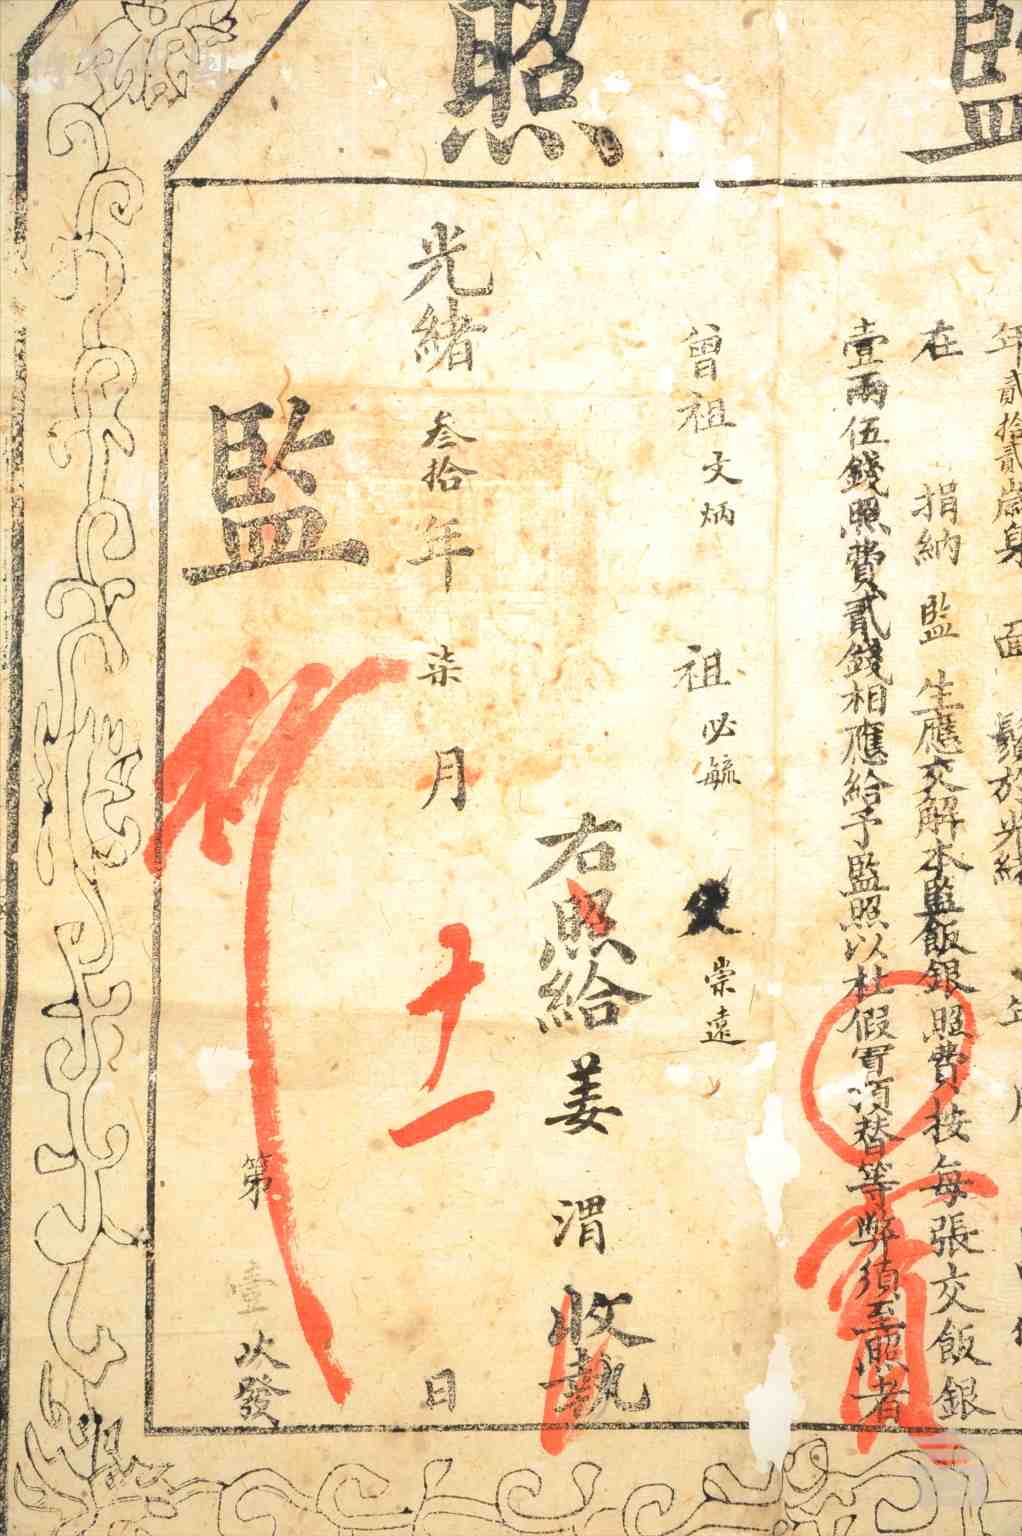 監照
年貳拾貳歲身 面 鬚於光緒 年 月
在 捐納 監 生應交解本監飯銀照費按每張交飯銀
壹兩伍錢照費貳錢相應給予監照以杜假冒頂替等弊須至照者
曾祖文炳 祖必毓 父崇遠
右照給姜渭收執
光緒叁拾年柒月十一日
監
第壹次發